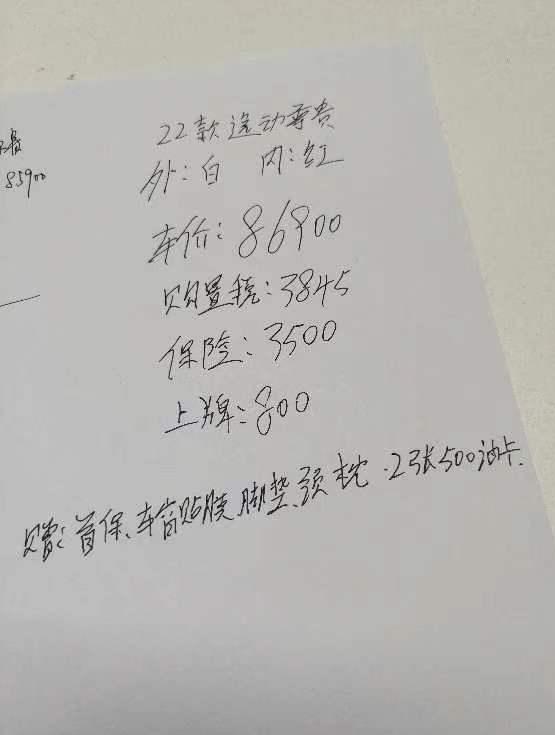 22款运动尊贵
85900
外:白 内:红
车价:86900
购置税:3845
保险:3500
上牌:800
赠:首保、车窗贴膜、脚垫、颈枕、2张500油卡.